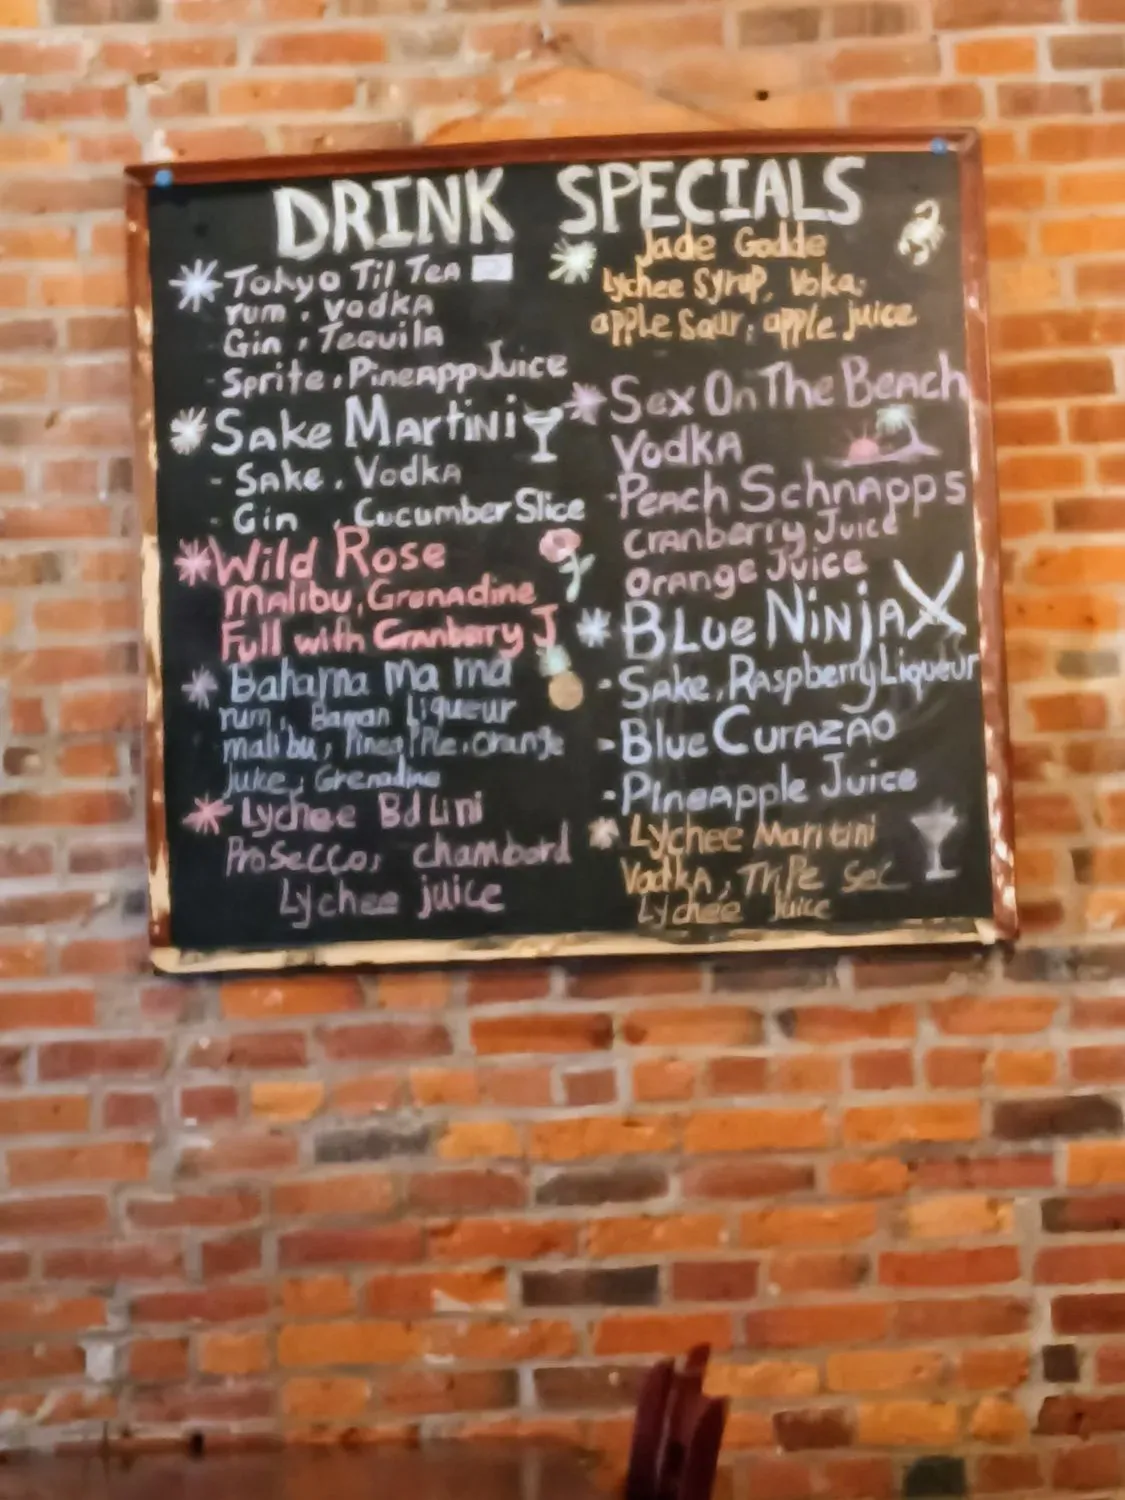 DRINK SPECIALS
Tokyo Til Tea
rum, vodka
Gin, Tequila
- Sprite, Pineapp Juice
Sake Martini
- Sake, Vodka
- Gin, Cucumber Slice
Wild Rose
Malibu, Grenadine
Full with Cranberry J
Bahama Ma ma
rum, Banan Liqueur
malibu, Pineapple, orange
juke, Grenadine
Lychee Bellini
Prosecco, chambord
Lychee juice
Jade Godde
Lychee Syrup, Voka,
apple Saur, apple juice
Sex On The Beach
Vodka
- Peach Schnapps
Cranberry Juice
Orange Juice
Blue Ninja
- Sake, Raspberry Liqueur
- Blue Curazao
- Pineapple Juice
Lychee Maritini
Vodka, Triple Sec
Lychee Juice